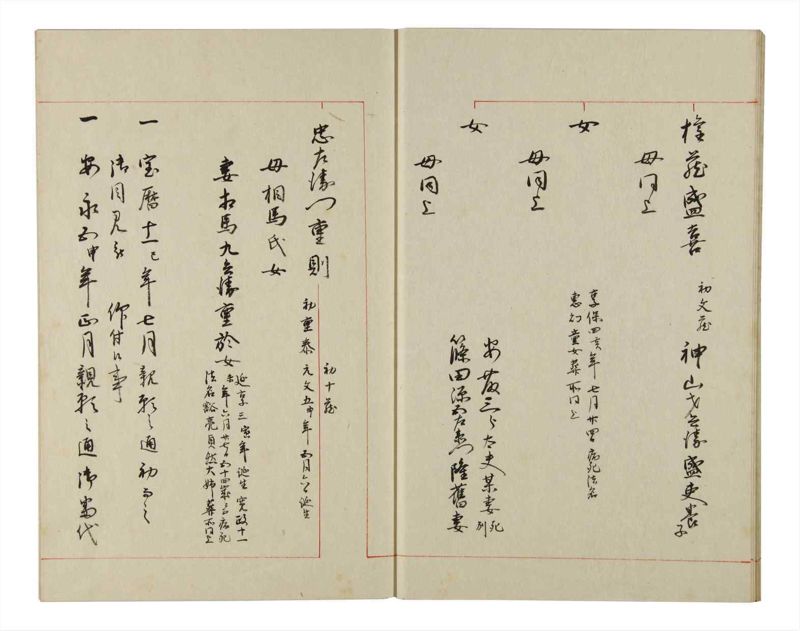 権蔵盛喜
初文蔵
神山才兵衛盛吏養子
母同上
女
享保四亥年七月廿四日病死法名
恵幻童女葬所同上
母同上
女
安藤三郎太夫某妻死
別
篠田源五左衛門隆舊妻
母同上
忠左衛門重則
初十蔵
初重泰元文五申年五月六日誕生
母相馬氏女
妻相馬九兵衛重於女
延享三寅年誕生寛政十一
未年六月廿七日五十四歳ニ而病死
法名谿亮貞然大姉葬所同上
一宝暦十一巳年七月親願之通初而之
御目見被仰付候事
一安永五申年正月親願之通御当代